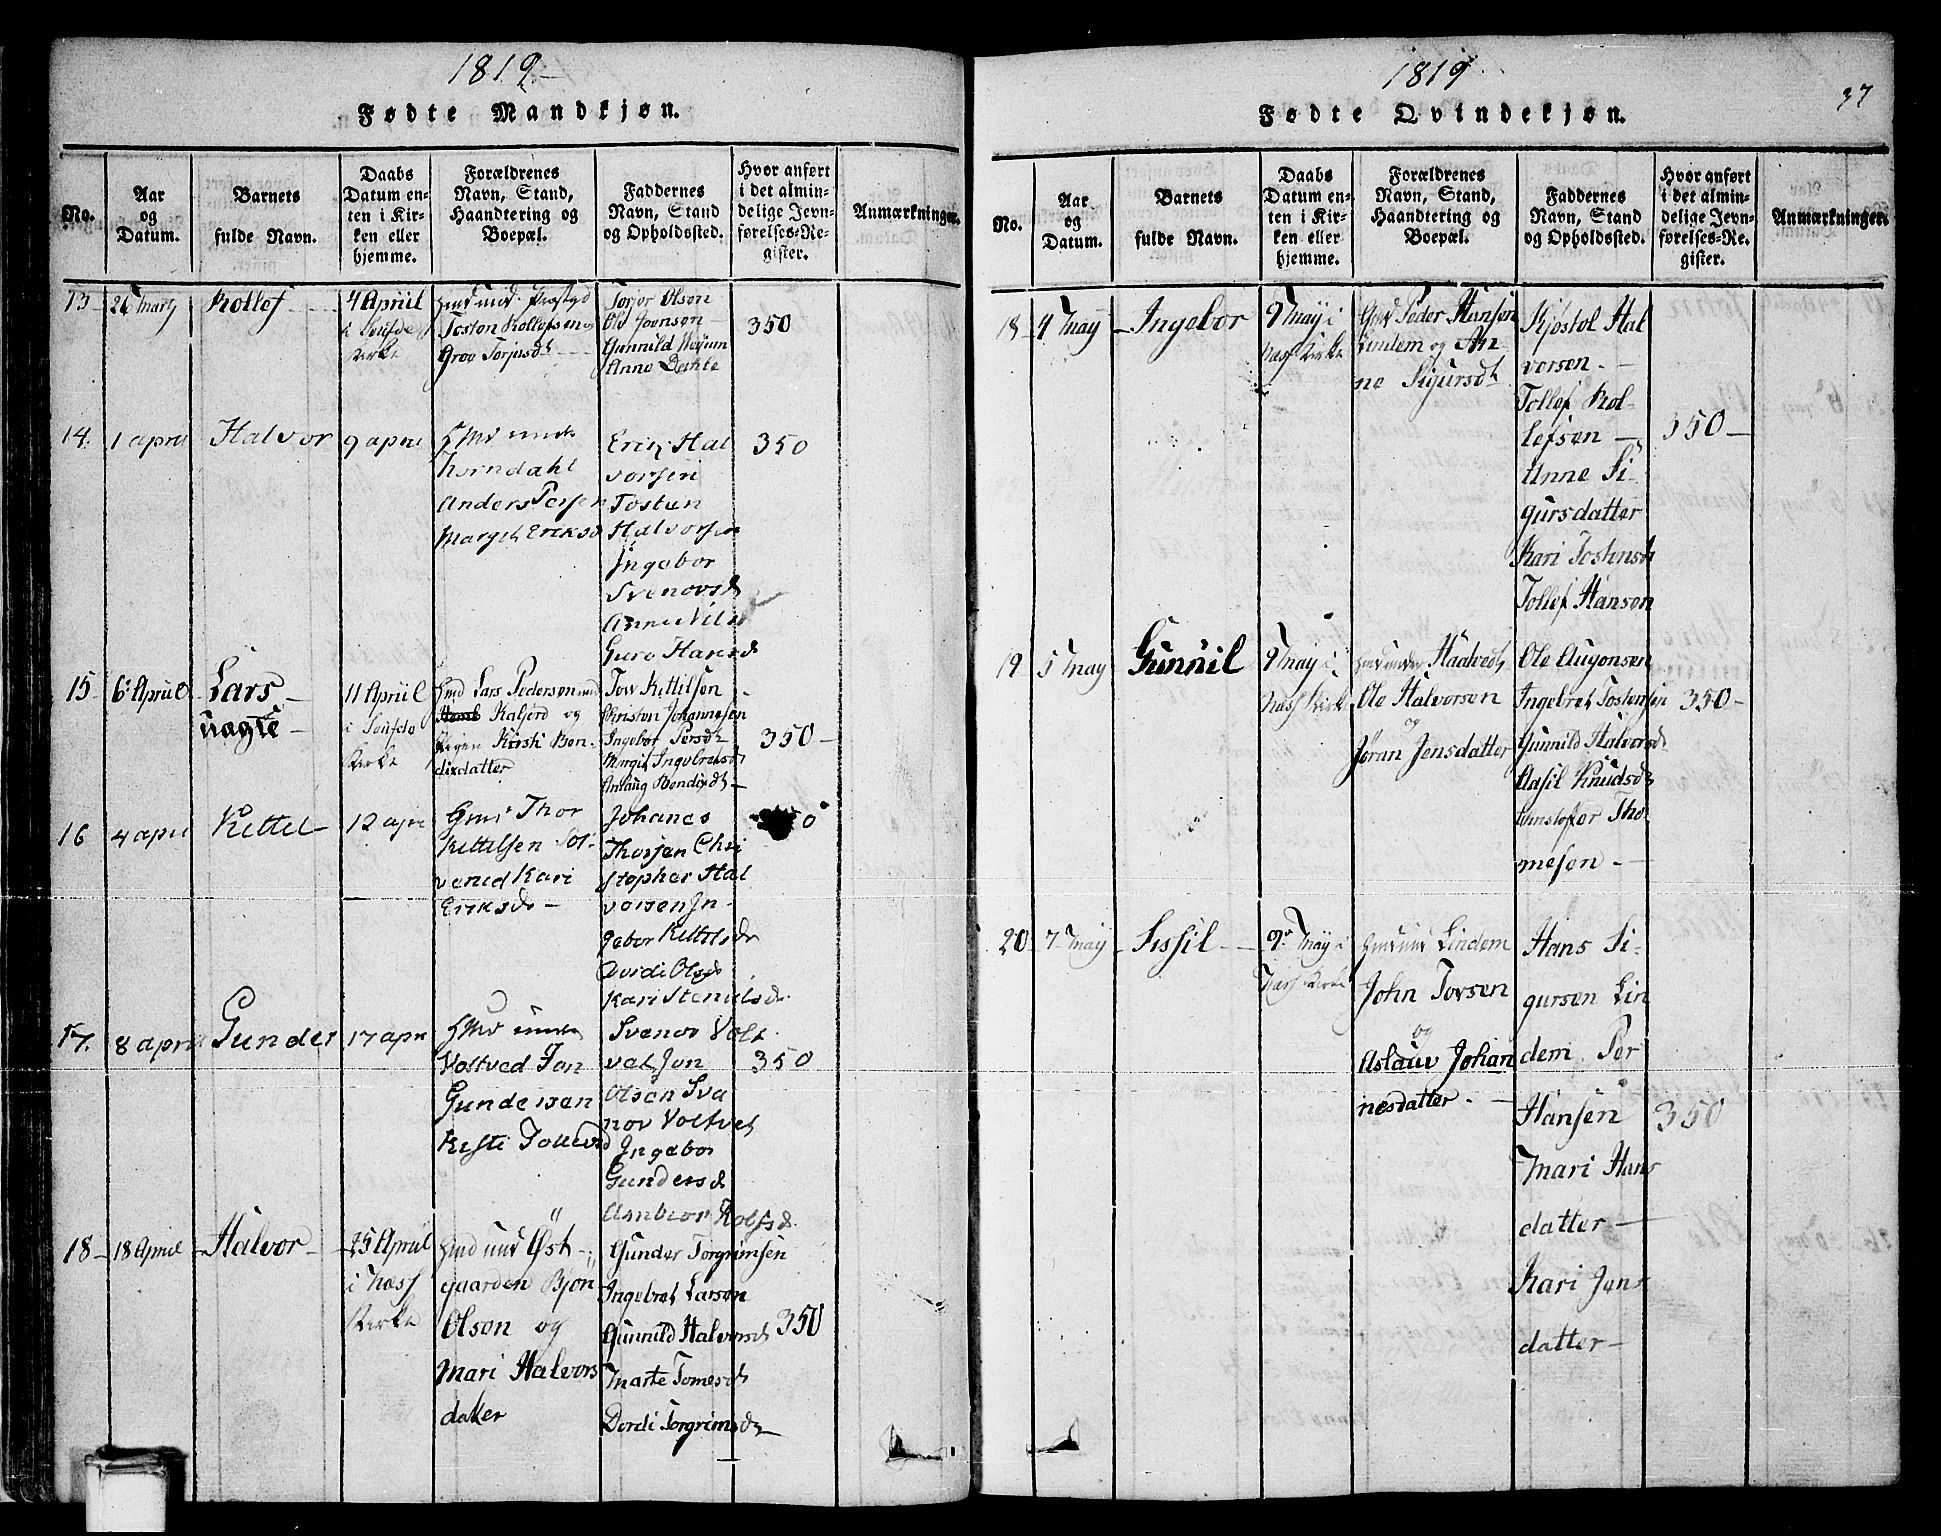 1819
Fødte Mandkjøn.
No.
Aar
og
Datum.
Barnets
fulde Navn.
Daabs
Datum en-
ten i Kir-
ken eller
hjemme.
Forældrenes
Navn, Stand,
Haandtering og
Boepæl.
Faddernes
Navn, Stand
og Opholdssted.
Hvor anført
i det almin-
delige Jevn-
førelses-Re-
gister.
Anmærkninger.
13
Rollef
4 April
Kirke
Tosten Rollefsen og
Groe Torjusdt
Torjor Olsen
Ole Joensen
Gunnild
Anne Dahle
350
14.
1 april
Halvor
9 april
Thorndahl
Anders Persen
Margit Eriksd
Erik Hal
vorsen
Tosten
Halvorsen
Ingebor
Svenovsd
Anne Nils
Guro Hansd
350
15
6 April
Lars
uægte
11 April
i
Kirke
Lars Pedersen
Kaljord og
Pigen Kirsti Ben-
dixdatter
Tov Kittilsen
Christen Johannesen
Ingebor Persdt
Margit Ingebretsdt
Anlaug Bendixdt
350
16
4 april
Kittel
12 apr
Thor
Kittilsen Sol
Kari
Eriksd
Johanes
Thorsen Chri
stopher Hal
vorsen In-
gebor Kittilsd
Dordi Olsd
Kari Stenulsd
0
17.
8 april
Gunder
17 apr
Voltved Jon
Gundersen
Svenov Volt
vet Jon
Olsen Sva
nov Voltvet
Ingebor
Gundersd
Asnbior Rolfsd
350
18
18 April
Halvor
25 April
i Næss
Kirke
Øst-
gaarden Bjøn
Olsen og
Mari Halvors
datter
Gunder Torgrimsen
Ingebret Larsen
Gunnild Halvorsdt
Marte Tomesdt
Dordi Torgrimsdt
350
1819
37
Fødte Qvindekjøn.
No.
Aar
og
Datum.
Barnets
fulde Navn.
Daabs
Datum en-
ten i Kir-
ken eller
hjemme.
Forældrenes
Navn, Stand,
Haandtering og
Boepæl.
Faddernes
Navn, Stand
og Opholdssted.
Hvor anført
i det almin-
delige Jevn-
førelses-Re-
gister.
Anmærkninger.
18
4 May
Ingebor
9 May i
Næss Kirke
Peder Hansen
Lindem og An-
ne Sigursdt
Kjøstol Hal
vorsen
Tollef Rol-
lefsen
Anne Si-
gursdatter
Kari Tostensdt
Tollef Hansen
350
19
5 May
Gunnil
9 May i
Næss Kirke
Haatvedt
Ole Halvorsen
og
Jøran Jensdatter
Ole Augonsen
Ingebret Tostensen
Gunnild Halvorsdt
Aasil Knudsdt
Christofer Tho
mesen
350
20
7 May
Sissil
9 May i
Næss Kirke
Lindem
John Torsen
og
Aslaue Johan
nesdatter
Hans Si-
gursen Lin
dem Per
Hansen
Mari Hans
datter
Kari Jens
datter
350